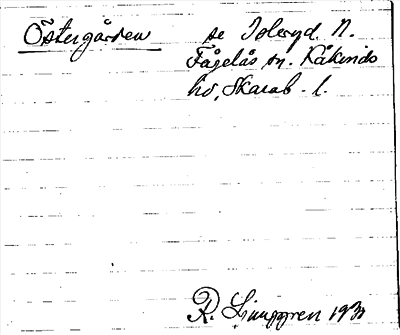 Östergården se Toleryd. N.
Fågelås sn. Kåkinds
hd, Skarab. l.
R. Ljunggren 1931